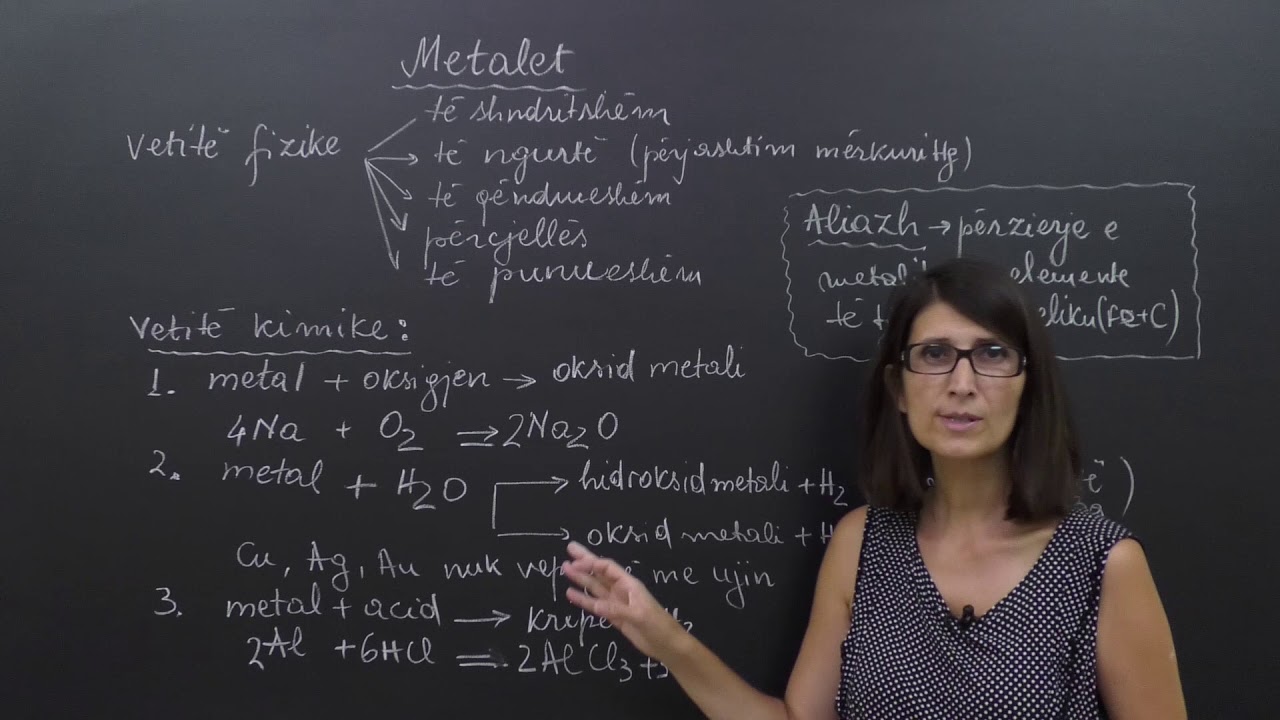 Metalet
të shndritshëm
vetitë fizike
të ngurtë (përjashtim mërkuri Hg)
të qëndrueshëm
përcjellës
të punueshëm
Aliazh → përzierje e
elemente
të (Fe+C)
Vetitë kimike:
1. metal + oksigjen → oksid metali
4Na + O2 = 2Na2O
2. metal + H2O → hidroksid metali + H2
→ oksid metali +
Cu, Ag, Au nuk me ujin
3. metal + acid →
2Al + 6HCl = 2AlCl3 +